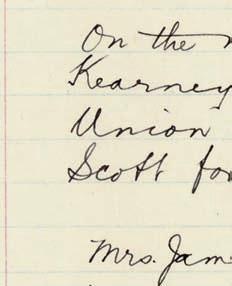 On the
Kearney
Union
Scott for
Mrs. Jam